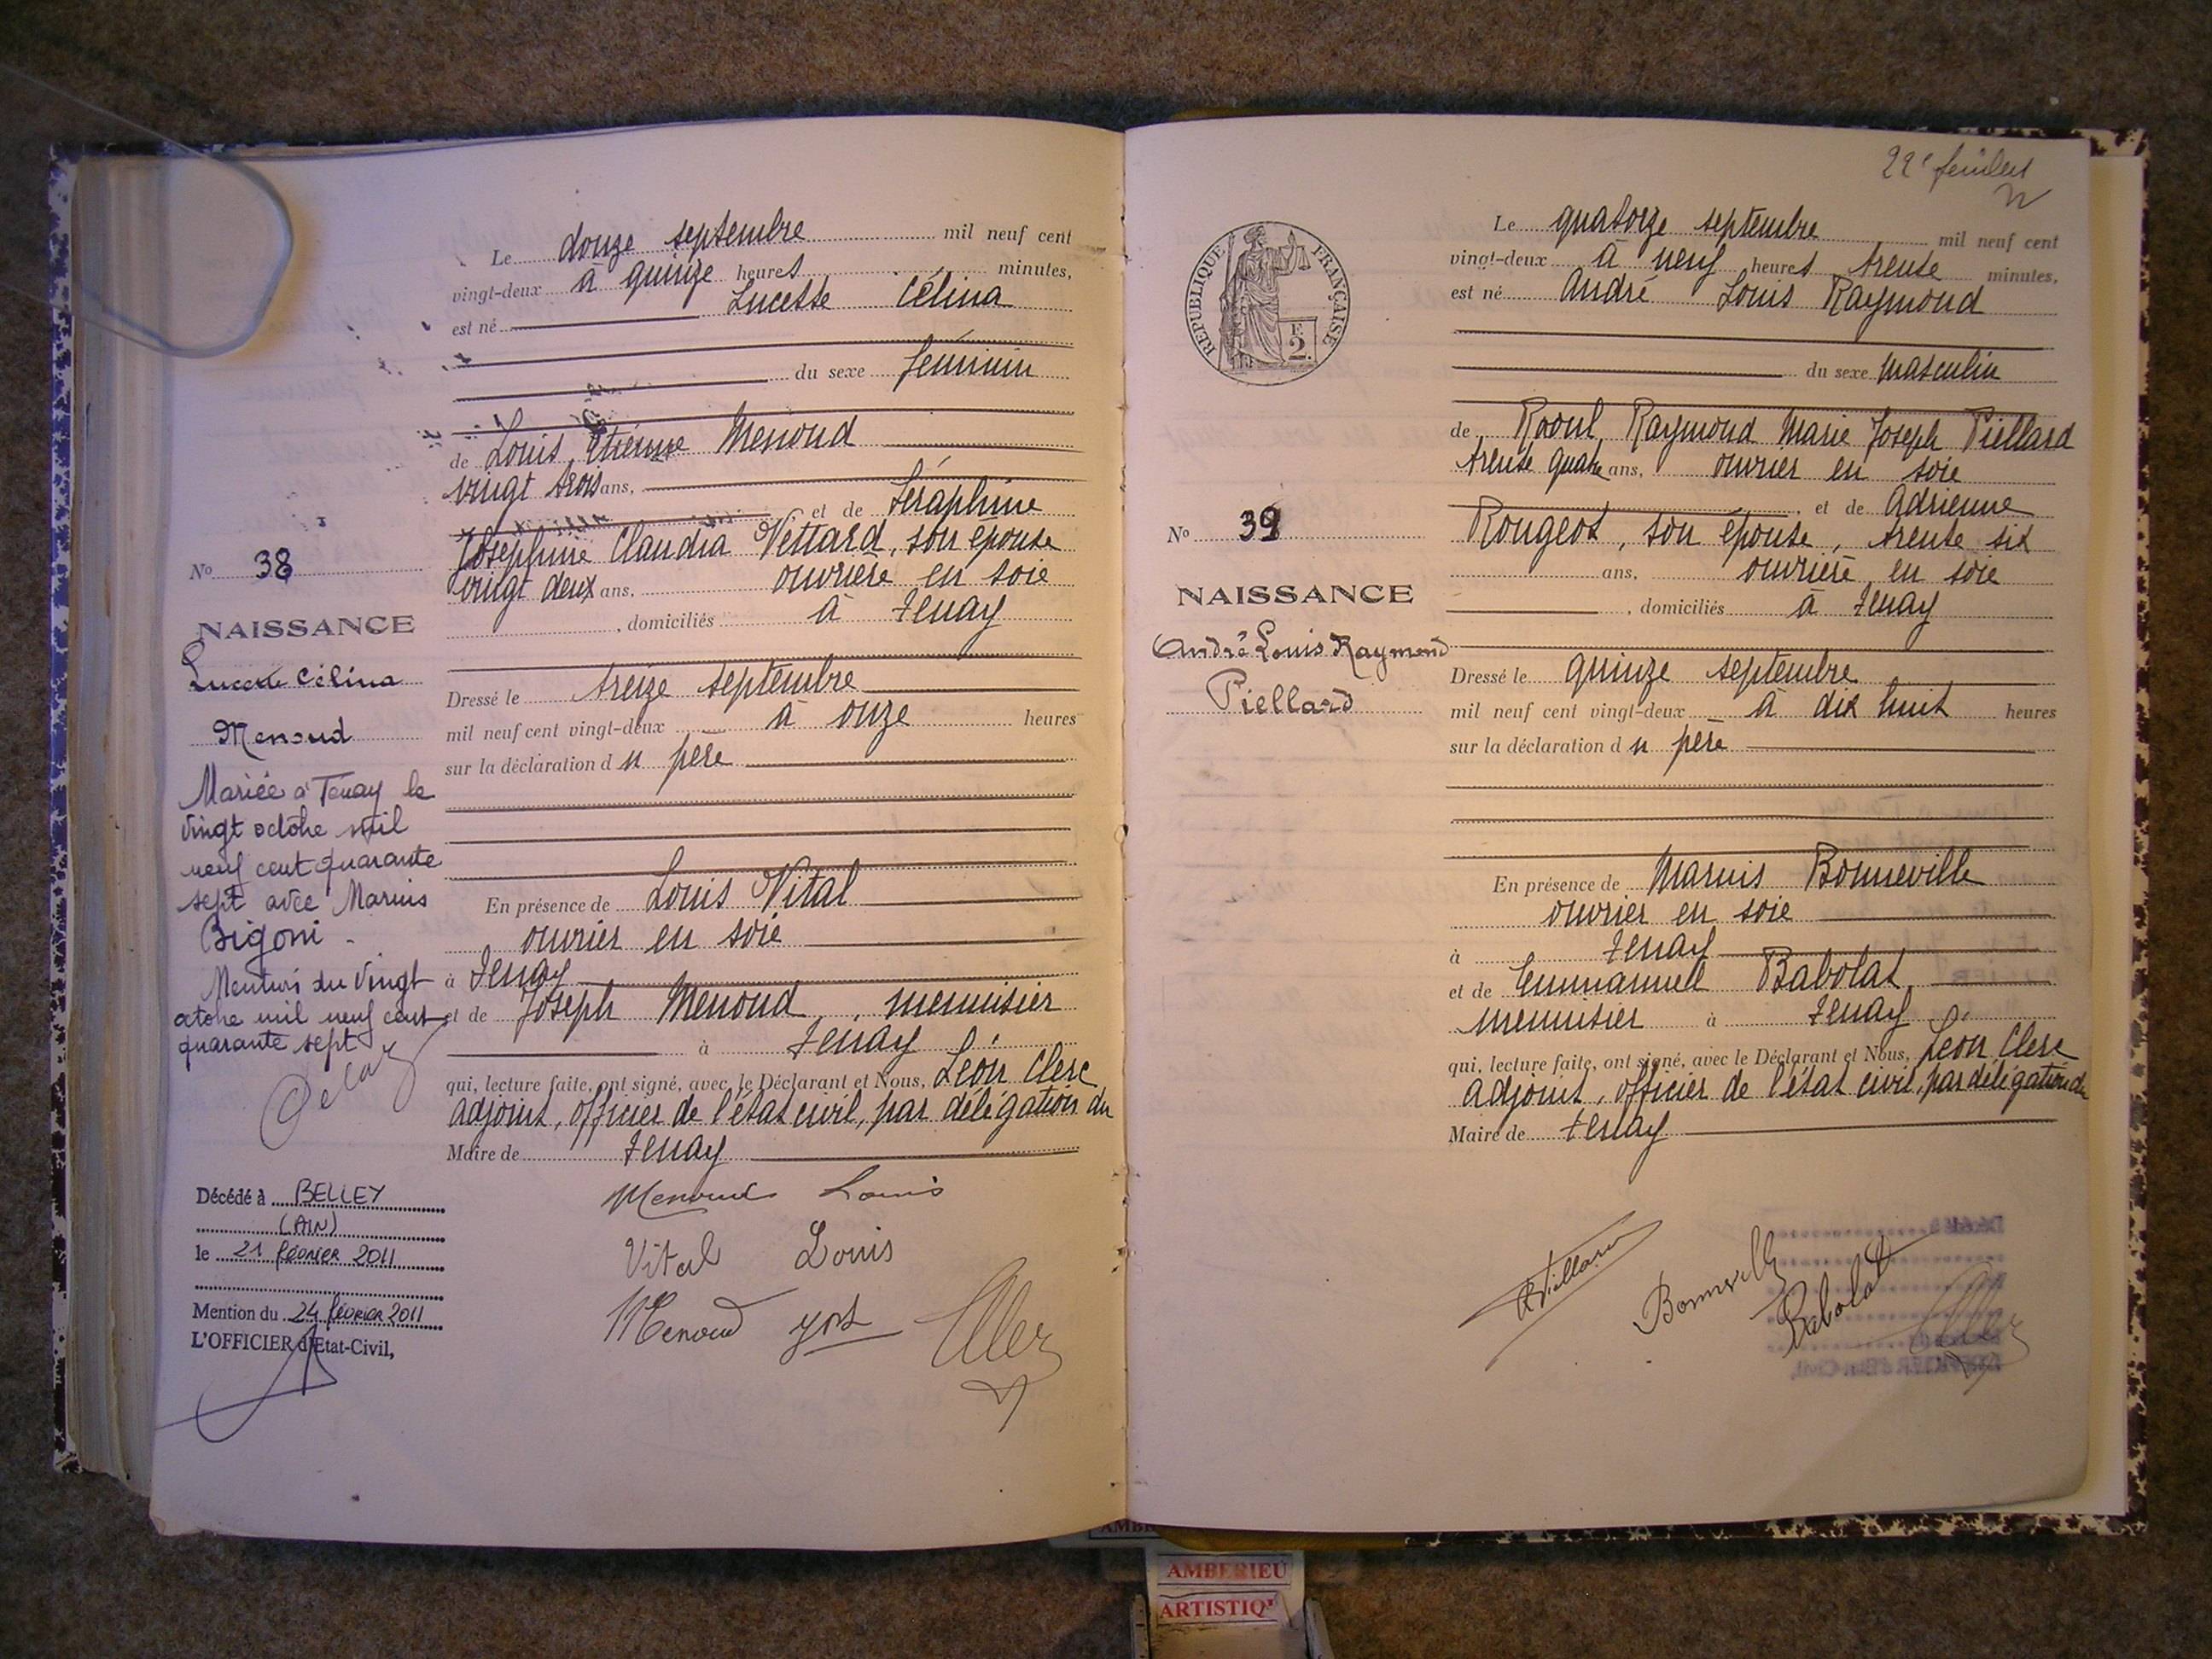 Le douze septembre mil neuf cent
vingt-deux à quinze heures minutes,
est né Lucette Célina
du sexe féminin
de Louis, Etienne Menoud
vingt trois ans,
et de Séraphine
Joséphine Claudia Vettard, son épouse
vingt deux ans, ouvrière en soie
, domiciliés à Tenay
Dressé le treize septembre
mil neuf cent vingt-deux à onze heures
sur la déclaration du père
En présence de Louis Vital
ouvrier en soie
à Tenay
et de Joseph Menoud, menuisier
à Tenay
qui, lecture faite, ont signé, avec le Déclarant et Nous, Léon Clerc
adjoint, officier de l'état civil, par délégation du
Maire de Tenay
Menoud Louis
Vital Louis
Menoud
No 38
NAISSANCE
Lucette Célina
Menoud
Mariée à Tenay le
vingt octobre mil
neuf cent quarante
sept avec Marius
Bigoni.
Mention du vingt
octobre mil neuf cent
quarante sept
Décédé à BELLEY
(AIN)
le 21 février 2011
Mention du 24 février 2011
L'OFFICIER d'Etat-Civil,
22e feuillet
RÉPUBLIQUE FRANÇAISE
F.
2.
Le quatorze septembre mil neuf cent
vingt-deux à neuf heures trente minutes,
est né André Louis Raymond
du sexe masculin
de Raoul Raymond Marie Joseph Piellard
trente quatre ans, ouvrier en soie
, et de Adrienne
Rougeot, son épouse, trente six
ans, ouvrière en soie
, domiciliés à Tenay
Dressé le quinze septembre
mil neuf cent vingt-deux à dix huit heures
sur la déclaration du père
En présence de Marius Bonneville
ouvrier en soie
à Tenay
et de Emmanuel Babolat,
menuisier à Tenay
qui, lecture faite, ont signé, avec le Déclarant et Nous, Léon Clerc
adjoint, officier de l'état civil, par délégation du
Maire de Tenay
R Piellard
Bonneville
Babolat
No 39
NAISSANCE
André Louis Raymond
Piellard
AMBERIEU
ARTISTIQ